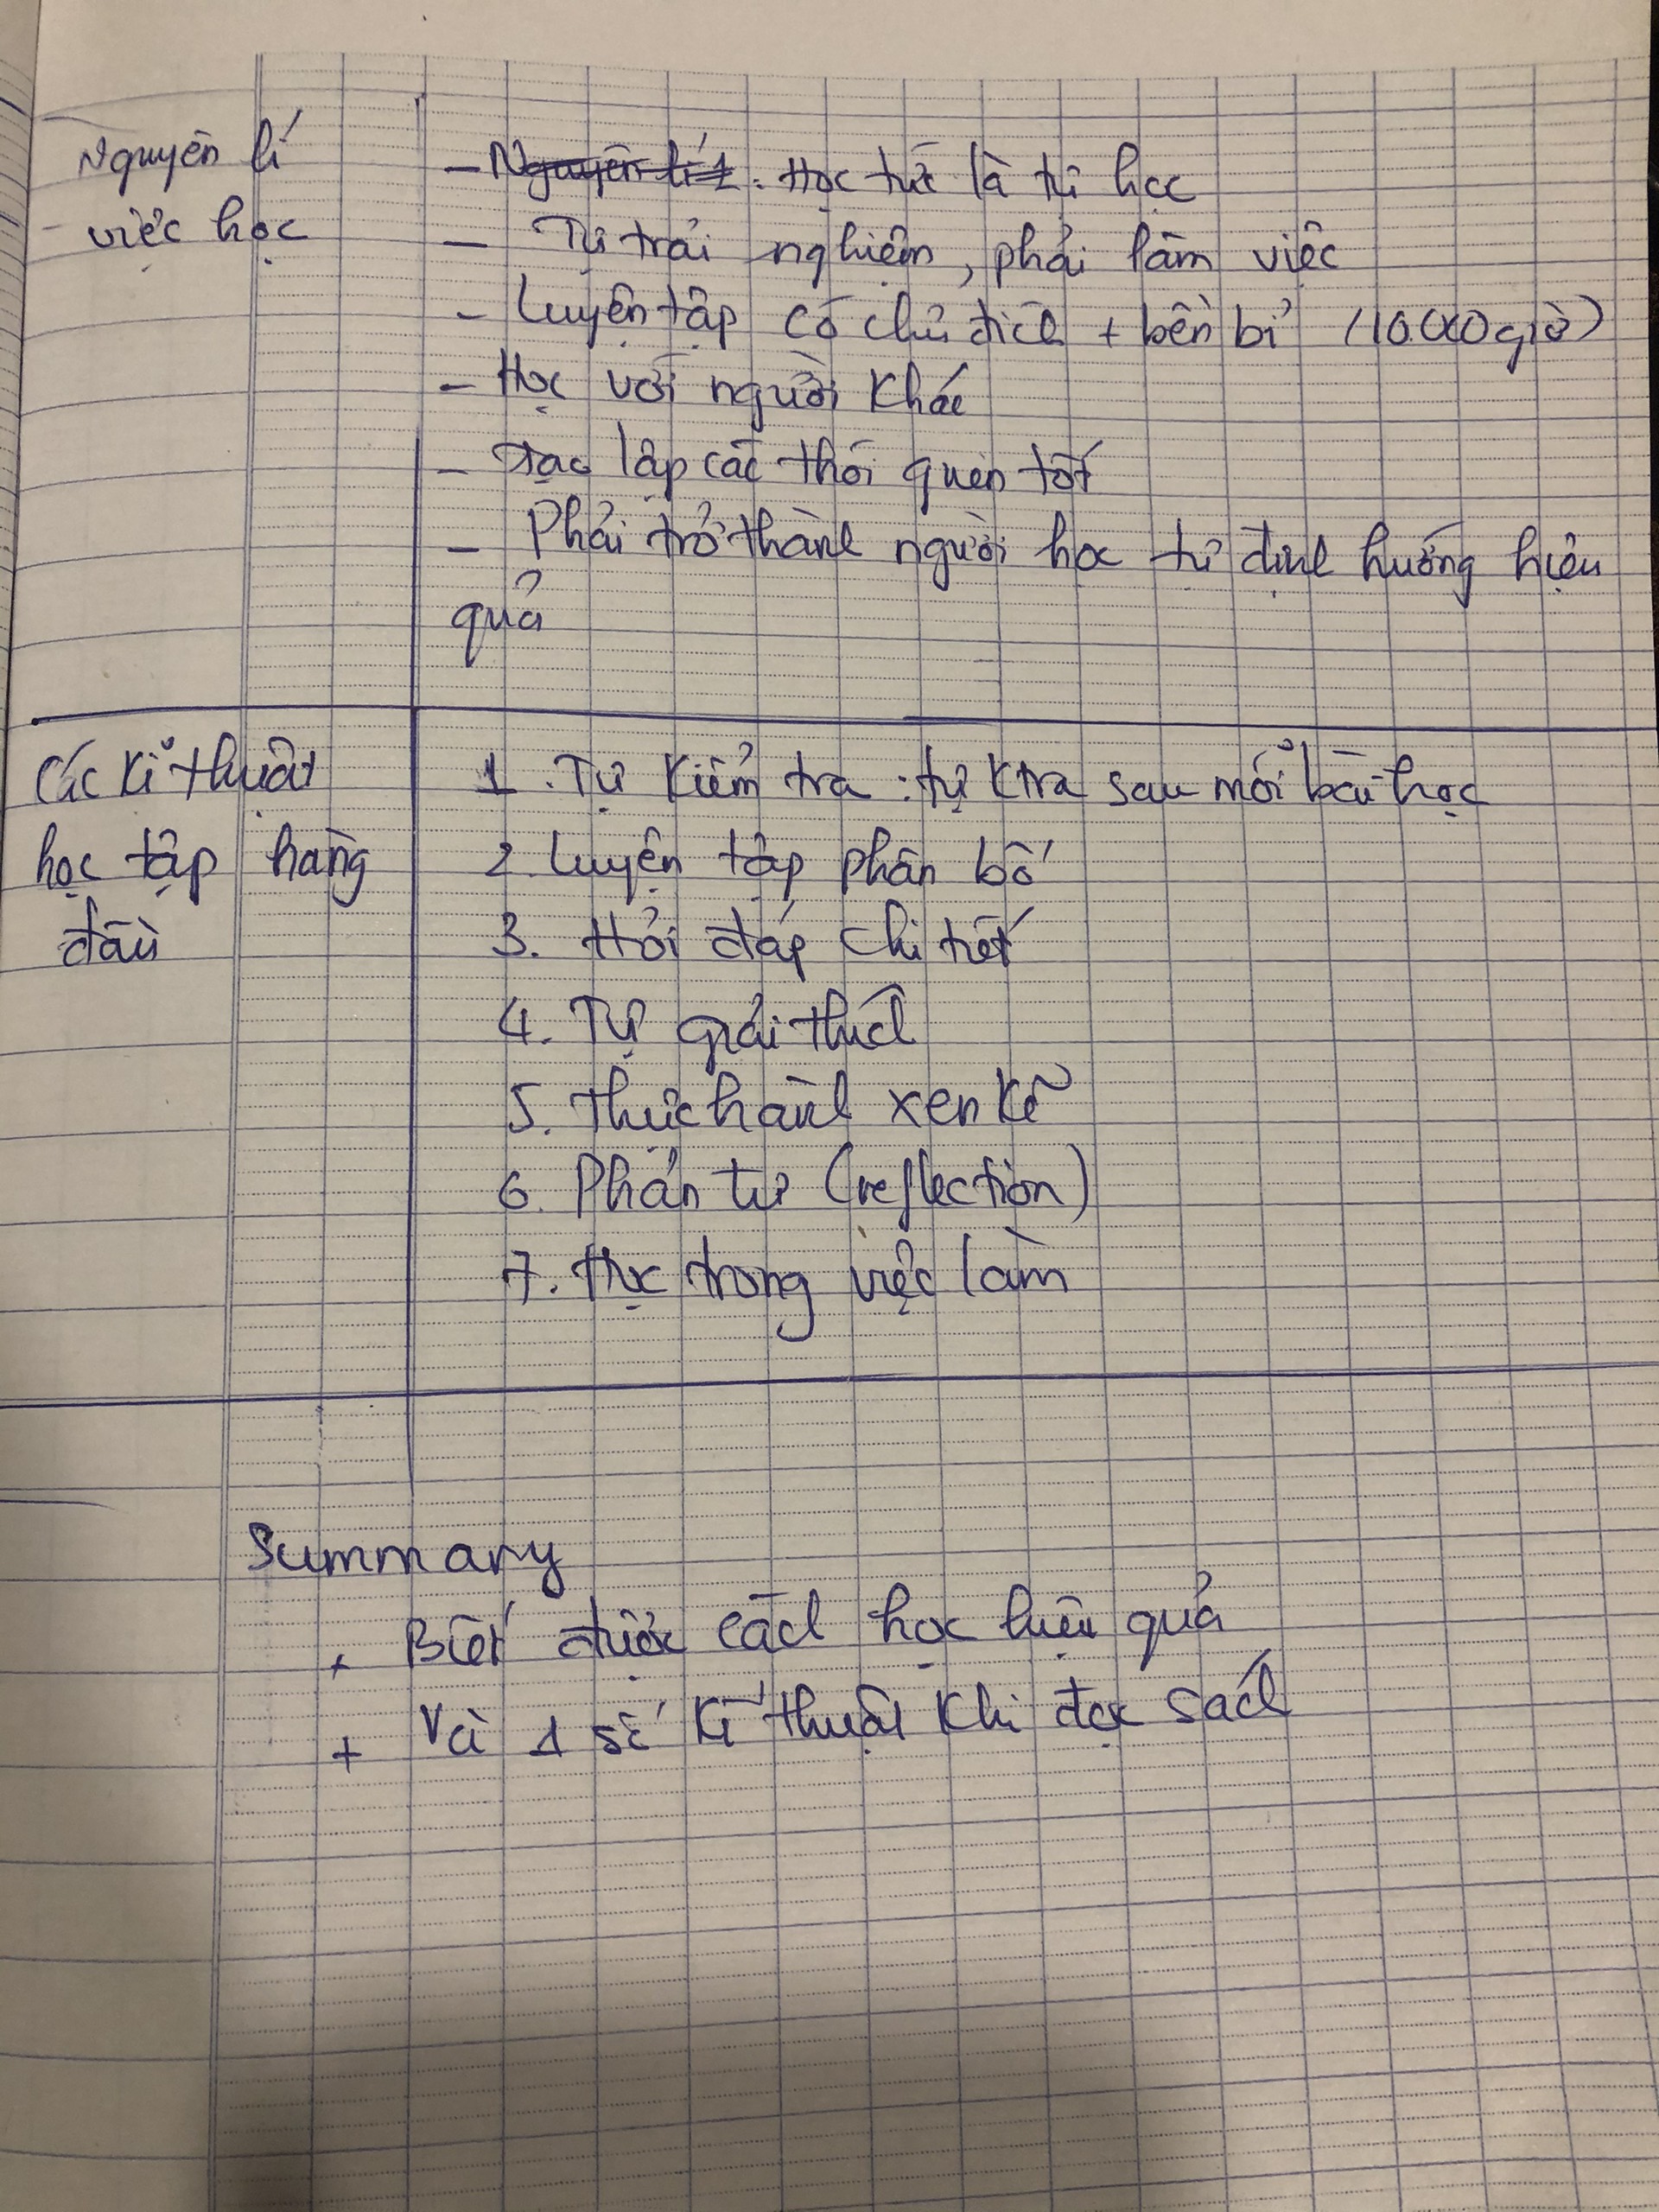 Nguyên lí
việc học
- Nguyên lí 1: Học tức là tự học
- Tự trải nghiệm, phải làm việc
- Luyện tập có chủ đích + bền bỉ (10.000 giờ)
- Học với người khác
- Tạo lập các thói quen tốt
- Phải trở thành người học tự định hướng hiệu
quả
Các kĩ thuật
học tập hàng
đầu
1. Tự kiểm tra: tự ktra sau mỗi bài học
2. Luyện tập phân bố
3. Hỏi đáp chi tiết
4. Tự giải thích
5. Thực hành xen kẽ
6. Phản tư (reflection)
7. Học trong việc làm
Summary
+ Biết được cách học hiệu quả
+ Và 1 số kĩ thuật khi đọc sách